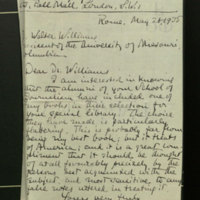 Pall Mall, London, S.W.1
Rome, May 21 1935
Walter Williams
President of the University of Missouri
Columbia
Dear Dr. Williams
I am interested in knowing
that the alumni of your School of
Journalism have included one of
my books in their selection for
your special library. The choice
they have made is particularly
flattering. This is probably far from
being my best book, but it treats
of America, and it is a great com-
pliment that it should be thought
of at all favorably precisely by the
persons best acquainted with the
subject and most sensitive to any
false notes uttered in treating it.
Yours very truly